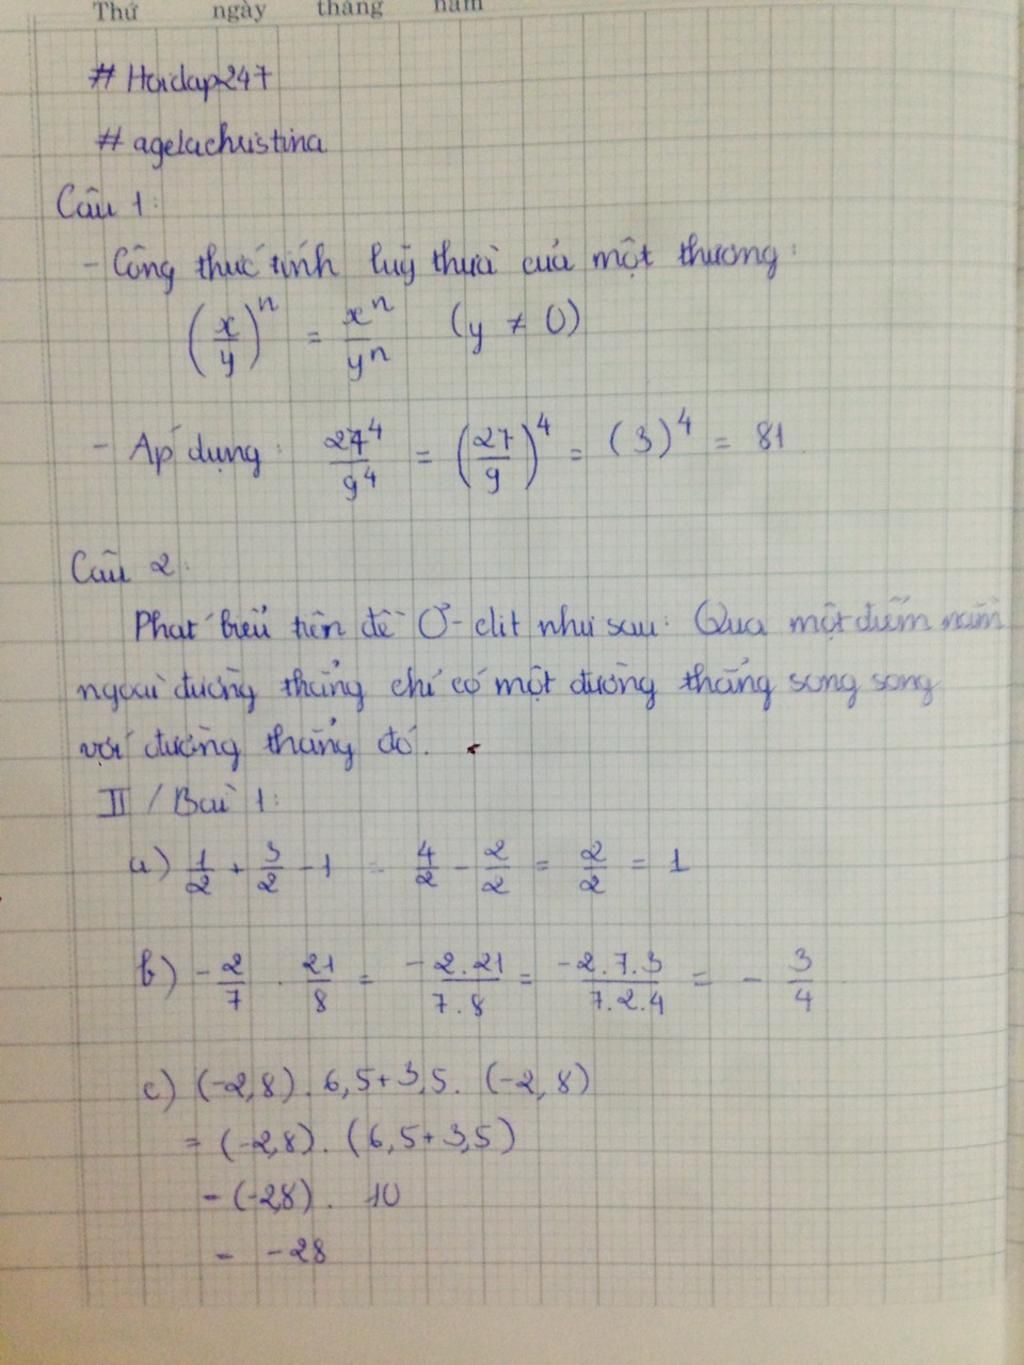 Thứ ngày tháng năm
# Hoidap247
# agelachustina
Câu 1:
- Công thức tính luỹ thừa của một thương:
(x/y)^n = x^n/y^n (y ≠ 0)
- Áp dụng: 27^4/9^4 = (27/9)^4 = (3)^4 = 81
Câu 2:
Phát biểu tiên đề Ơ-clit như sau: Qua một điểm nằm
ngoài đường thẳng chỉ có một đường thẳng song song
với đường thẳng đó.
II / Bài 1:
a) 1/2 + 3/2 - 1 = 4/2 - 2/2 = 2/2 = 1
b) -2/7 . 21/8 = -2.21/7.8 = -2.7.3/7.2.4 = -3/4
c) (-2,8). 6,5+3,5. (-2,8)
= (-2,8). (6,5+3,5)
= (-2,8). 10
= -28